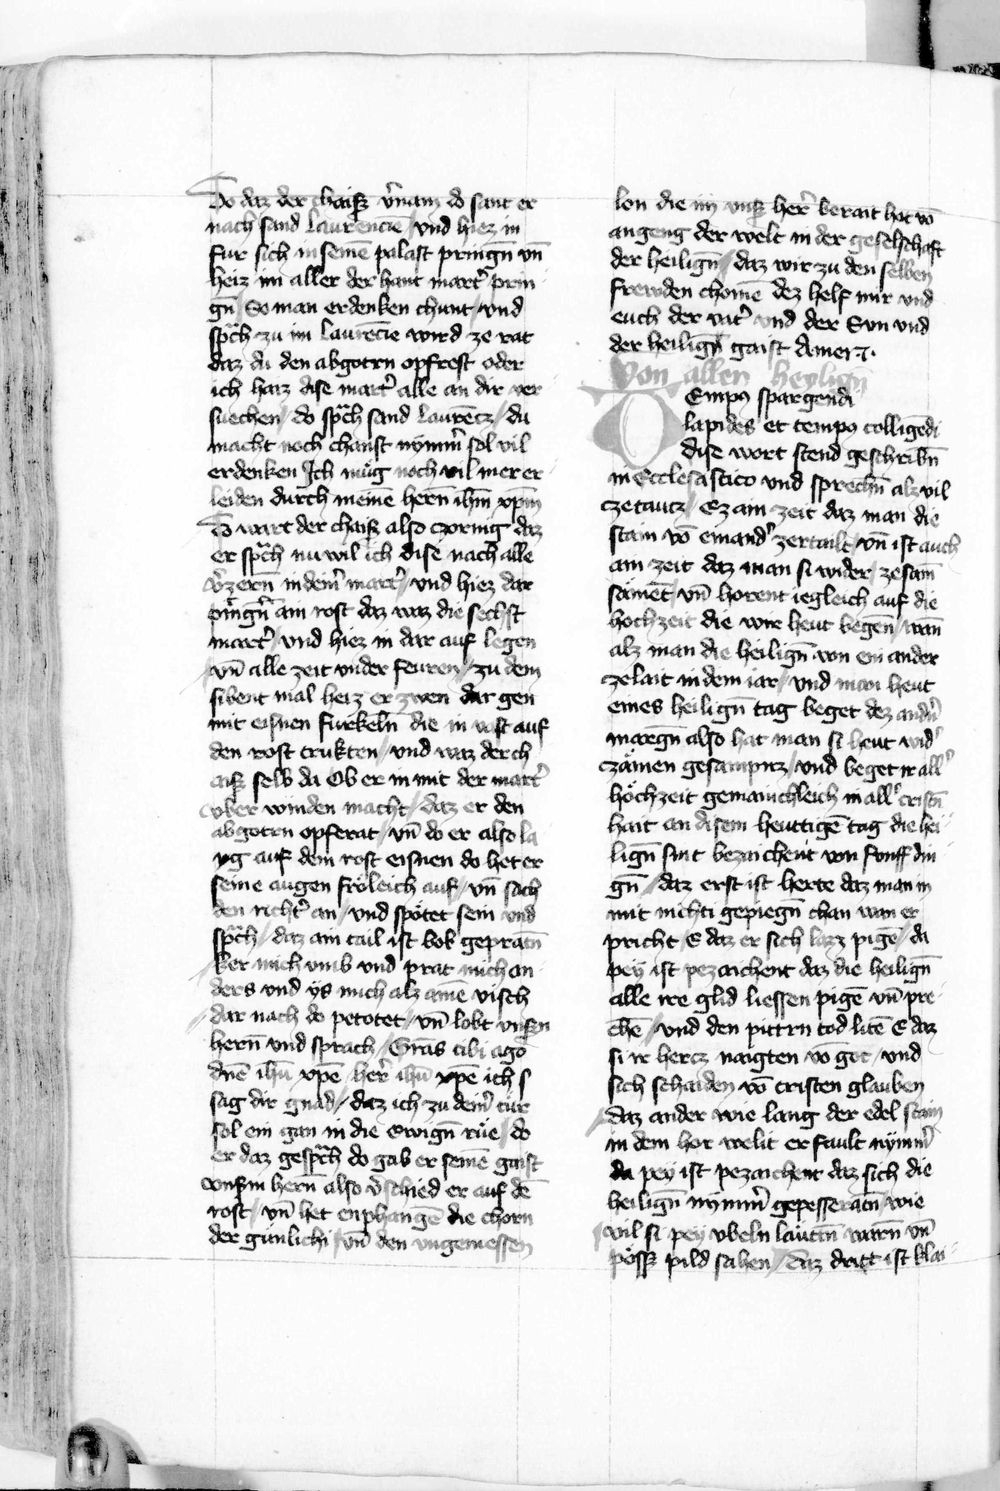 Do daz der chaiſz v̄nam do sant er
nach sand laurencie / vnd hiez in
fur sich in seinē palast pringn̄ vn̄
heiz im aller der hant mart̄ prin
gn̄ / So man erdenken chunt / vnd
sp̄ch zu im laurēcie wird ze rat
daz du den abgotrn opfrest oder
ich haiz dise mart̄ alle an dir ver
suechen / do sp̄ch sand laurēcz / du
macht noch chanst nȳmm̄ sol vil
erdenken Ich müg noch vil mer er
leiden durch meine hern̄ ihm̄ xpm̄
Do wart der chaiſz also czornig daz
er sp̄ch nu wil ich dise nach alle
v̄zern̄ in dem̄ mart̄ / vnd hiez dar
pringn̄ ain rost daz waz die sechst
mart̄ / vnd hiez in dar auf legen
vn̄ alle zeit vnder feuren / zu dem
sibent mal heiz er zwen dar gen
mit eisnen furkeln̄ die in vast auf
den rost trukten / vnd waz der ch
aiſz selb da Ob er in mit der mart̄
vber winden macht / daz er den
abgotrn opferat / vn̄ do er also la
yg auf dem rost eisnen do het er
seine augen fröleich auf / vn̄ sach
den richt̄ an / vnd spötet sein vnd
sp̄ch / daz ain tail ist bok gepratn̄
ker mich vmb vnd prat mich an
ders vnd ÿs mich alz ainē visch
dar nach do petotet / vn̄ lobt vnsern
hern̄ vnd sprach / Gr̄as tibi ago
dn̄e ihū xp̄e her̄ ihū xp̄e ich s
sag dir gnad / daz ich zu dein̄ tür
sol ein gan in die Ewign̄ rüe / do
er daz gesp̄ch do gab er seinē gaist
vnſm hern̄ also v̄schied er auf dē
rost / vn̄ het enphangē die chorn
der günlichi vn̄ den vngemessen
lon die iiii vnſz her̄ berait hot vō
angeng der welt in der geselschaft
der heilign̄ / daz wir zu den selben
frewden chomē dez helf mir vnd
euch der vat̄ vnd der Sun vnd
der heilign̄ gaist Amen.
Von allen heylign̄
Tempus spargendi
lapides et tempus colligēdi
dise wort stend geschribn̄
in Ecclesiastico vnd sprechn̄ alz vil
czetaucz / Ez ain zeit daz man die
stain vō einand̄ zertailt / vn̄ ist auch
ain zeit daz man si wider / zesam̄
sāmēt / vn̄ horent iegleich auf die
höchzeit die wir heut begen̄ / wan̄
alz man die heilign̄ von ein ander
zelait in dem iar / vnd man heut
eines heilign̄ tag beget dez andn̄
margn̄ also hat man si heut wid̄
czämen gesampnz / vnd beget ir all̄
höchzeit gemainchleich in all̄ cristn̄
hait an disem heuttigē tag die hei
lign̄ sint bezaichent von funff din
gn̄ / daz erst ist herte daz man in
mit nichti gepiegn̄ chan wan er
pricht / E daz er sich lazz pigē / da
pey ist pezaichent daz die heilign̄
alle ire glid liessen pigē vn̄ pre
chē / vnd den pittrn tod litē E daz
si ir hercz naigten vō got / vnd
sich schaiden vō cristen glauben
Daz ander wie lang der edel stain
in dem hor welit er fault nȳmm̄
da pey ist pezaichent daz sich die
heilign̄ nȳmm̄ gepesseratn̄ / wie
vil si pey vbeln läutin̄ warn̄ vn̄
pöſz pild sahen / Daz dritt ist klai